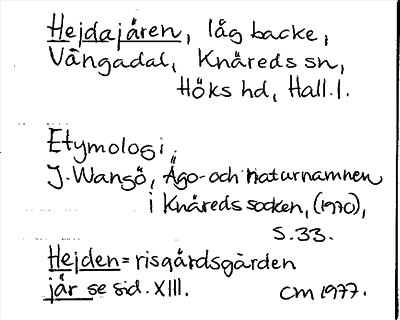 Hejdajåren, låg backe,
Vångadal, Knäreds sn,
Höks hd, Hall.l.
Etymologi.
J. Wangö, Ägo- och naturnamnen
i Knäreds socken, (1970),
s. 33.
Hejden = risgärdsgården
jår se sid. XIII.
CM 1977.